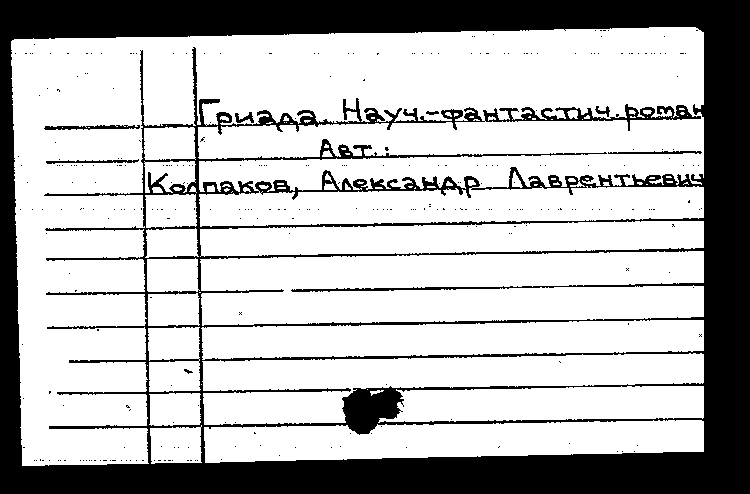 Гриада. Науч.-фантастич. роман
Авт.:
Колпаков, Александр Лаврентьевич